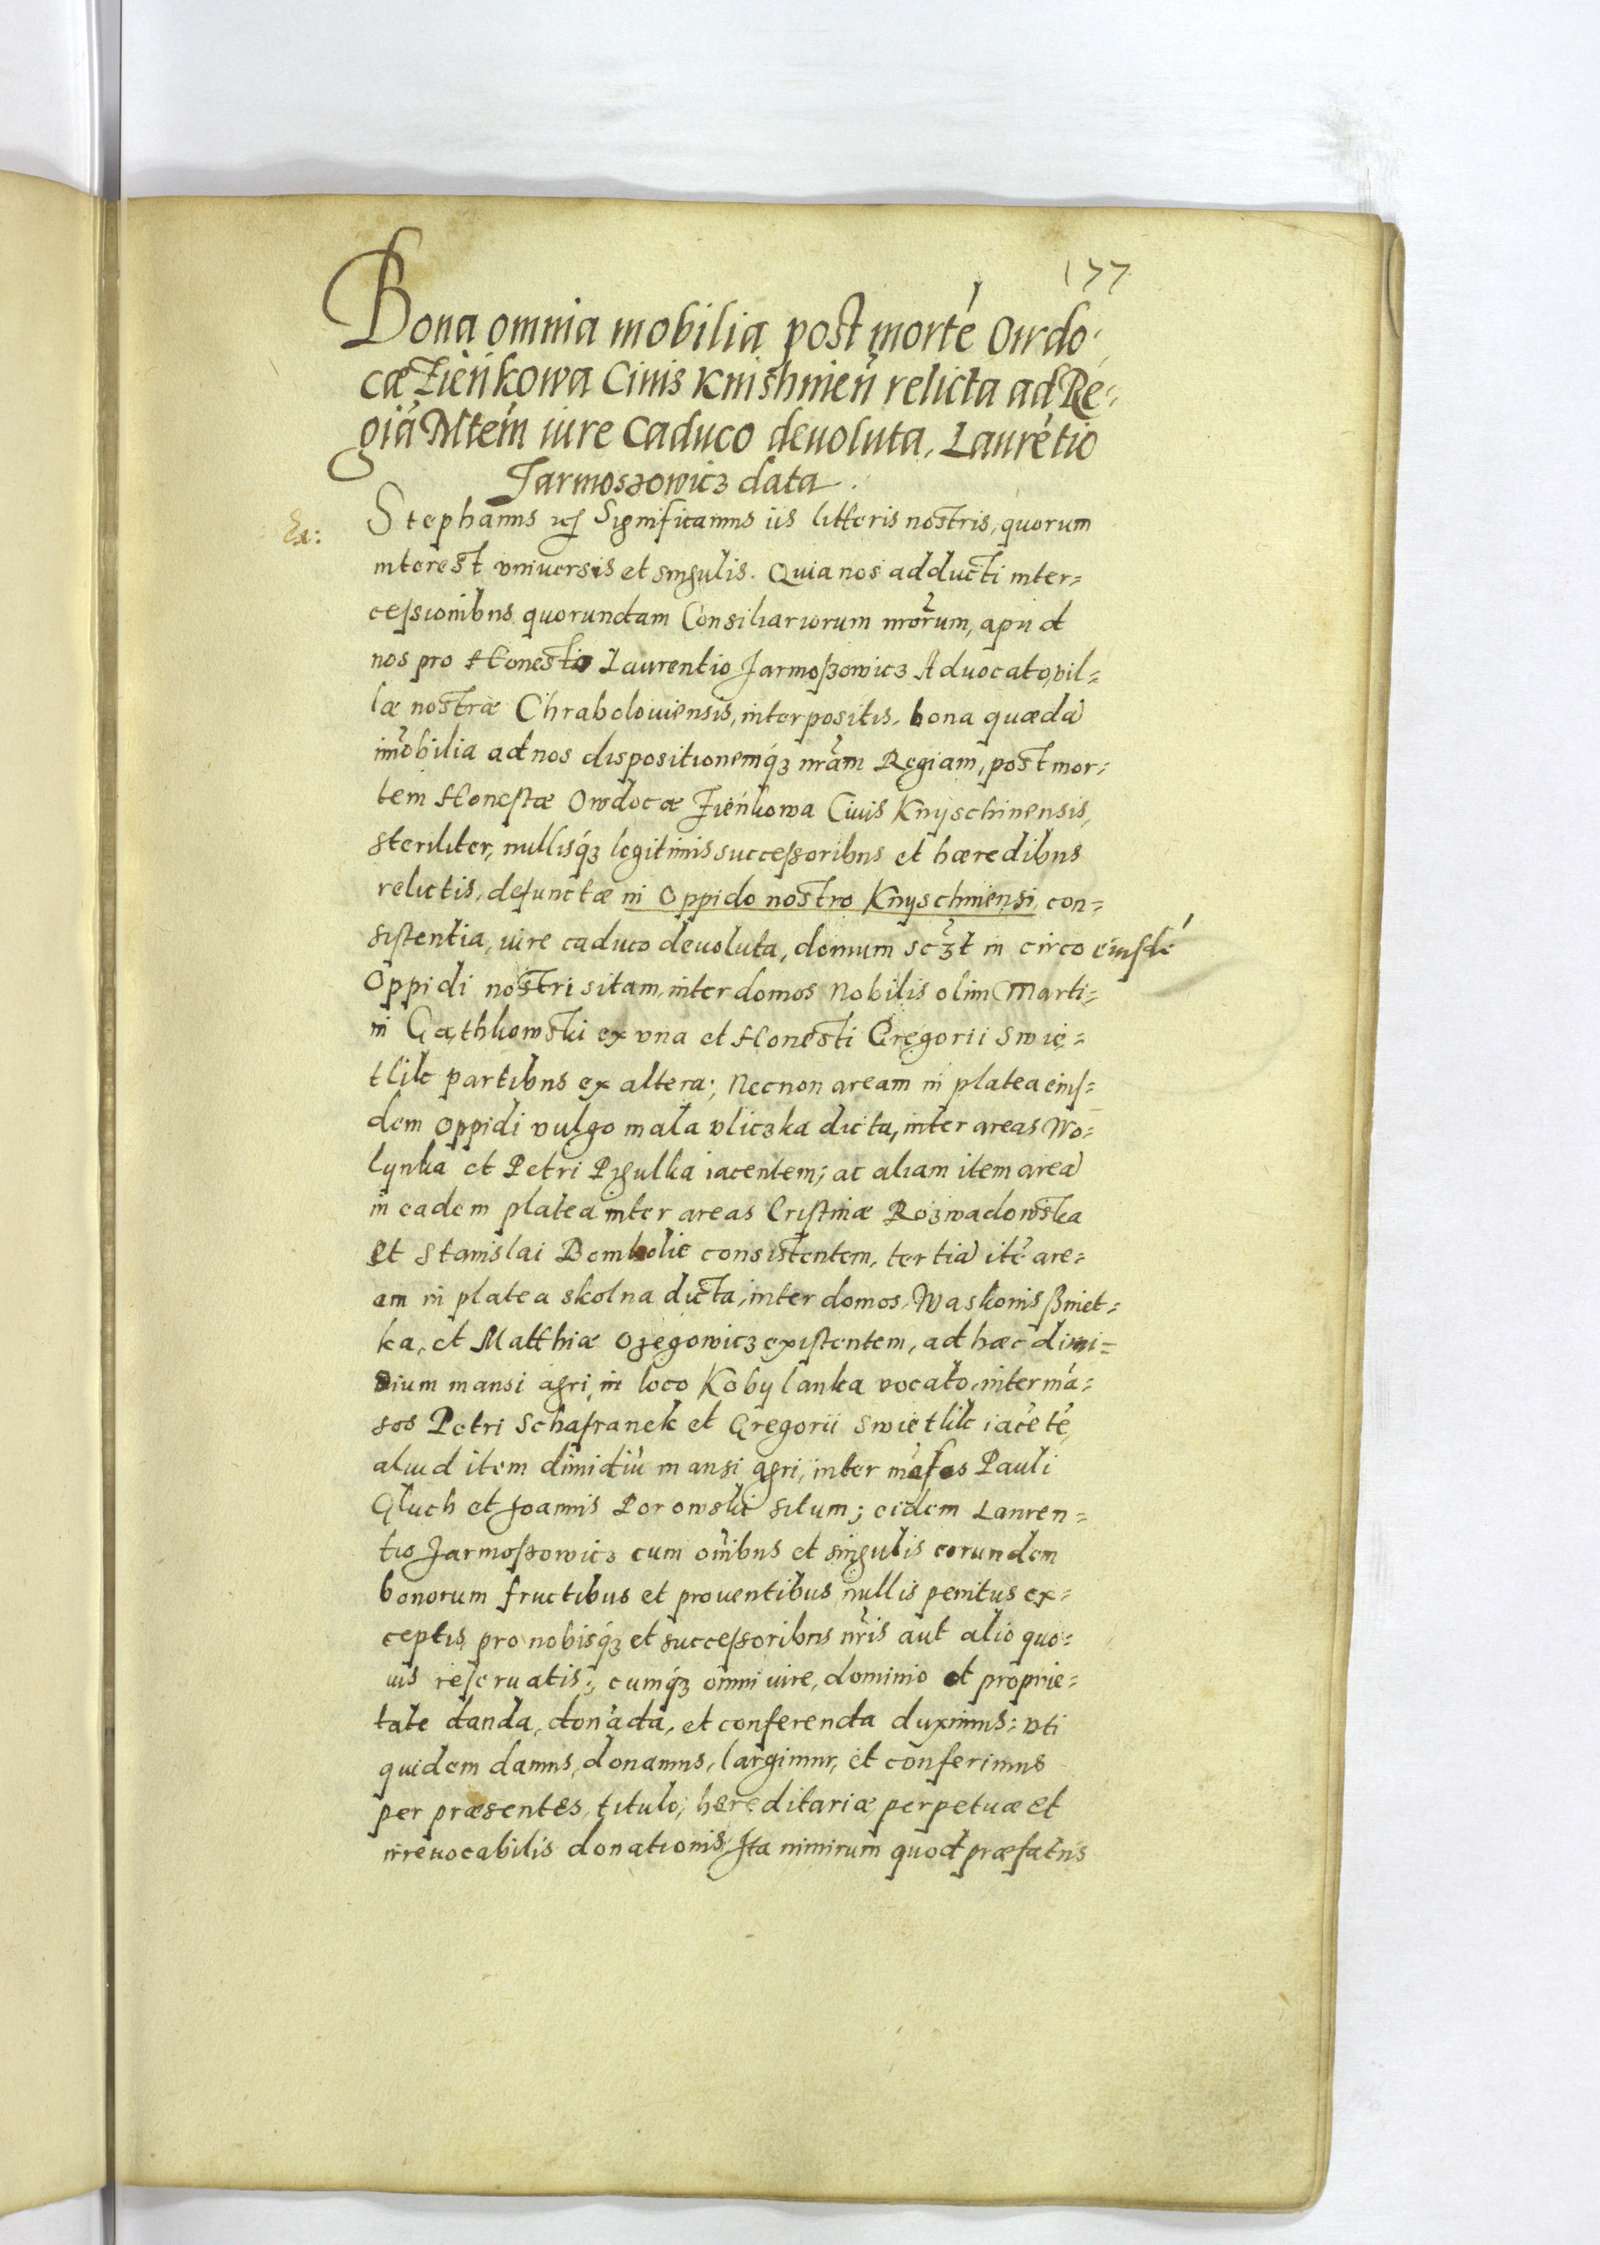 177
Bona omnia mobilia post morté Owdo-
cæ Zieńkowa Ciuis Knishinen̄ relicta ad Re-
giā Mtem iure Caduco deuoluta, Laurētio
Jarmoszowicz data.
Ex:
Stephanus etc Significamus iis litteris nostris, quorum
interest vniuersis et singulis. Quia nos adducti inter=
cessionibus quorundam Consiliariorum nrorum, apud
nos pro Honesto Laurentio Jarmoszowicz Aduocato vil=
læ nostræ Chraboloviensis, interpositis, bona quædā
imobilia ad nos dispositionemq́ʒ nram Regiam, post mor=
tem Honestæ Owdocæ Zieńkowa Ciuis Knyschinensis,
steriliter, nullisq́ʒ legitimis successoribus et hæredibus
relictis, defunctæ in Oppido nostro Knyschinensi con=
sistentia, iure caduco deuoluta, domum sczt in circo eiusdē
Oppidi nostri sitam, inter domos Nobilis olim Marti=
ni Gąthkowski ex vna et Honesti Gregorii Swię=
tlik partibus ex altera; Necnon aream in platea eius=
dem Oppidi vulgo mała vliczka dicta, inter areas Wo=
lynka et Petri Pigulka iacentem; ac aliam item areā
in eadem platea inter areas Cristinæ Rozwadowska
et Stanislai Bombolie consistentem, tertiā itē are=
am in platea skolna dicta, inter domos Waskonis
ka, et Matthiæ Ożegowicz existentem, ad hæc dimi=
dium mansi agri in loco Kobylanka vocato, inter mā=
sos Petri Schafranek et Gregorii Swietlik iacētē,
aliud item dimidiū mansi agri, inter māsos Pauli
Gluch et Joannis Porowski situm; eidem Lauren=
tio Jarmoszowicz cum omibus et singulis eorundem
bonorum fructibus et prouentibus nullis penitus ex=
ceptis pro nobisq́ʒ et successoribus nris aut alio quo=
uis reseruatis; cumq́ʒ omni iure, dominio et proprie=
tate danda, donāda, et conferenda duximus: vti
quidem damus, donamus, largimur, et conferimus
per præsentes, titulo, hereditariæ perpetuæ et
irreuocabilis donationis, Ita nimirum quod præfatus